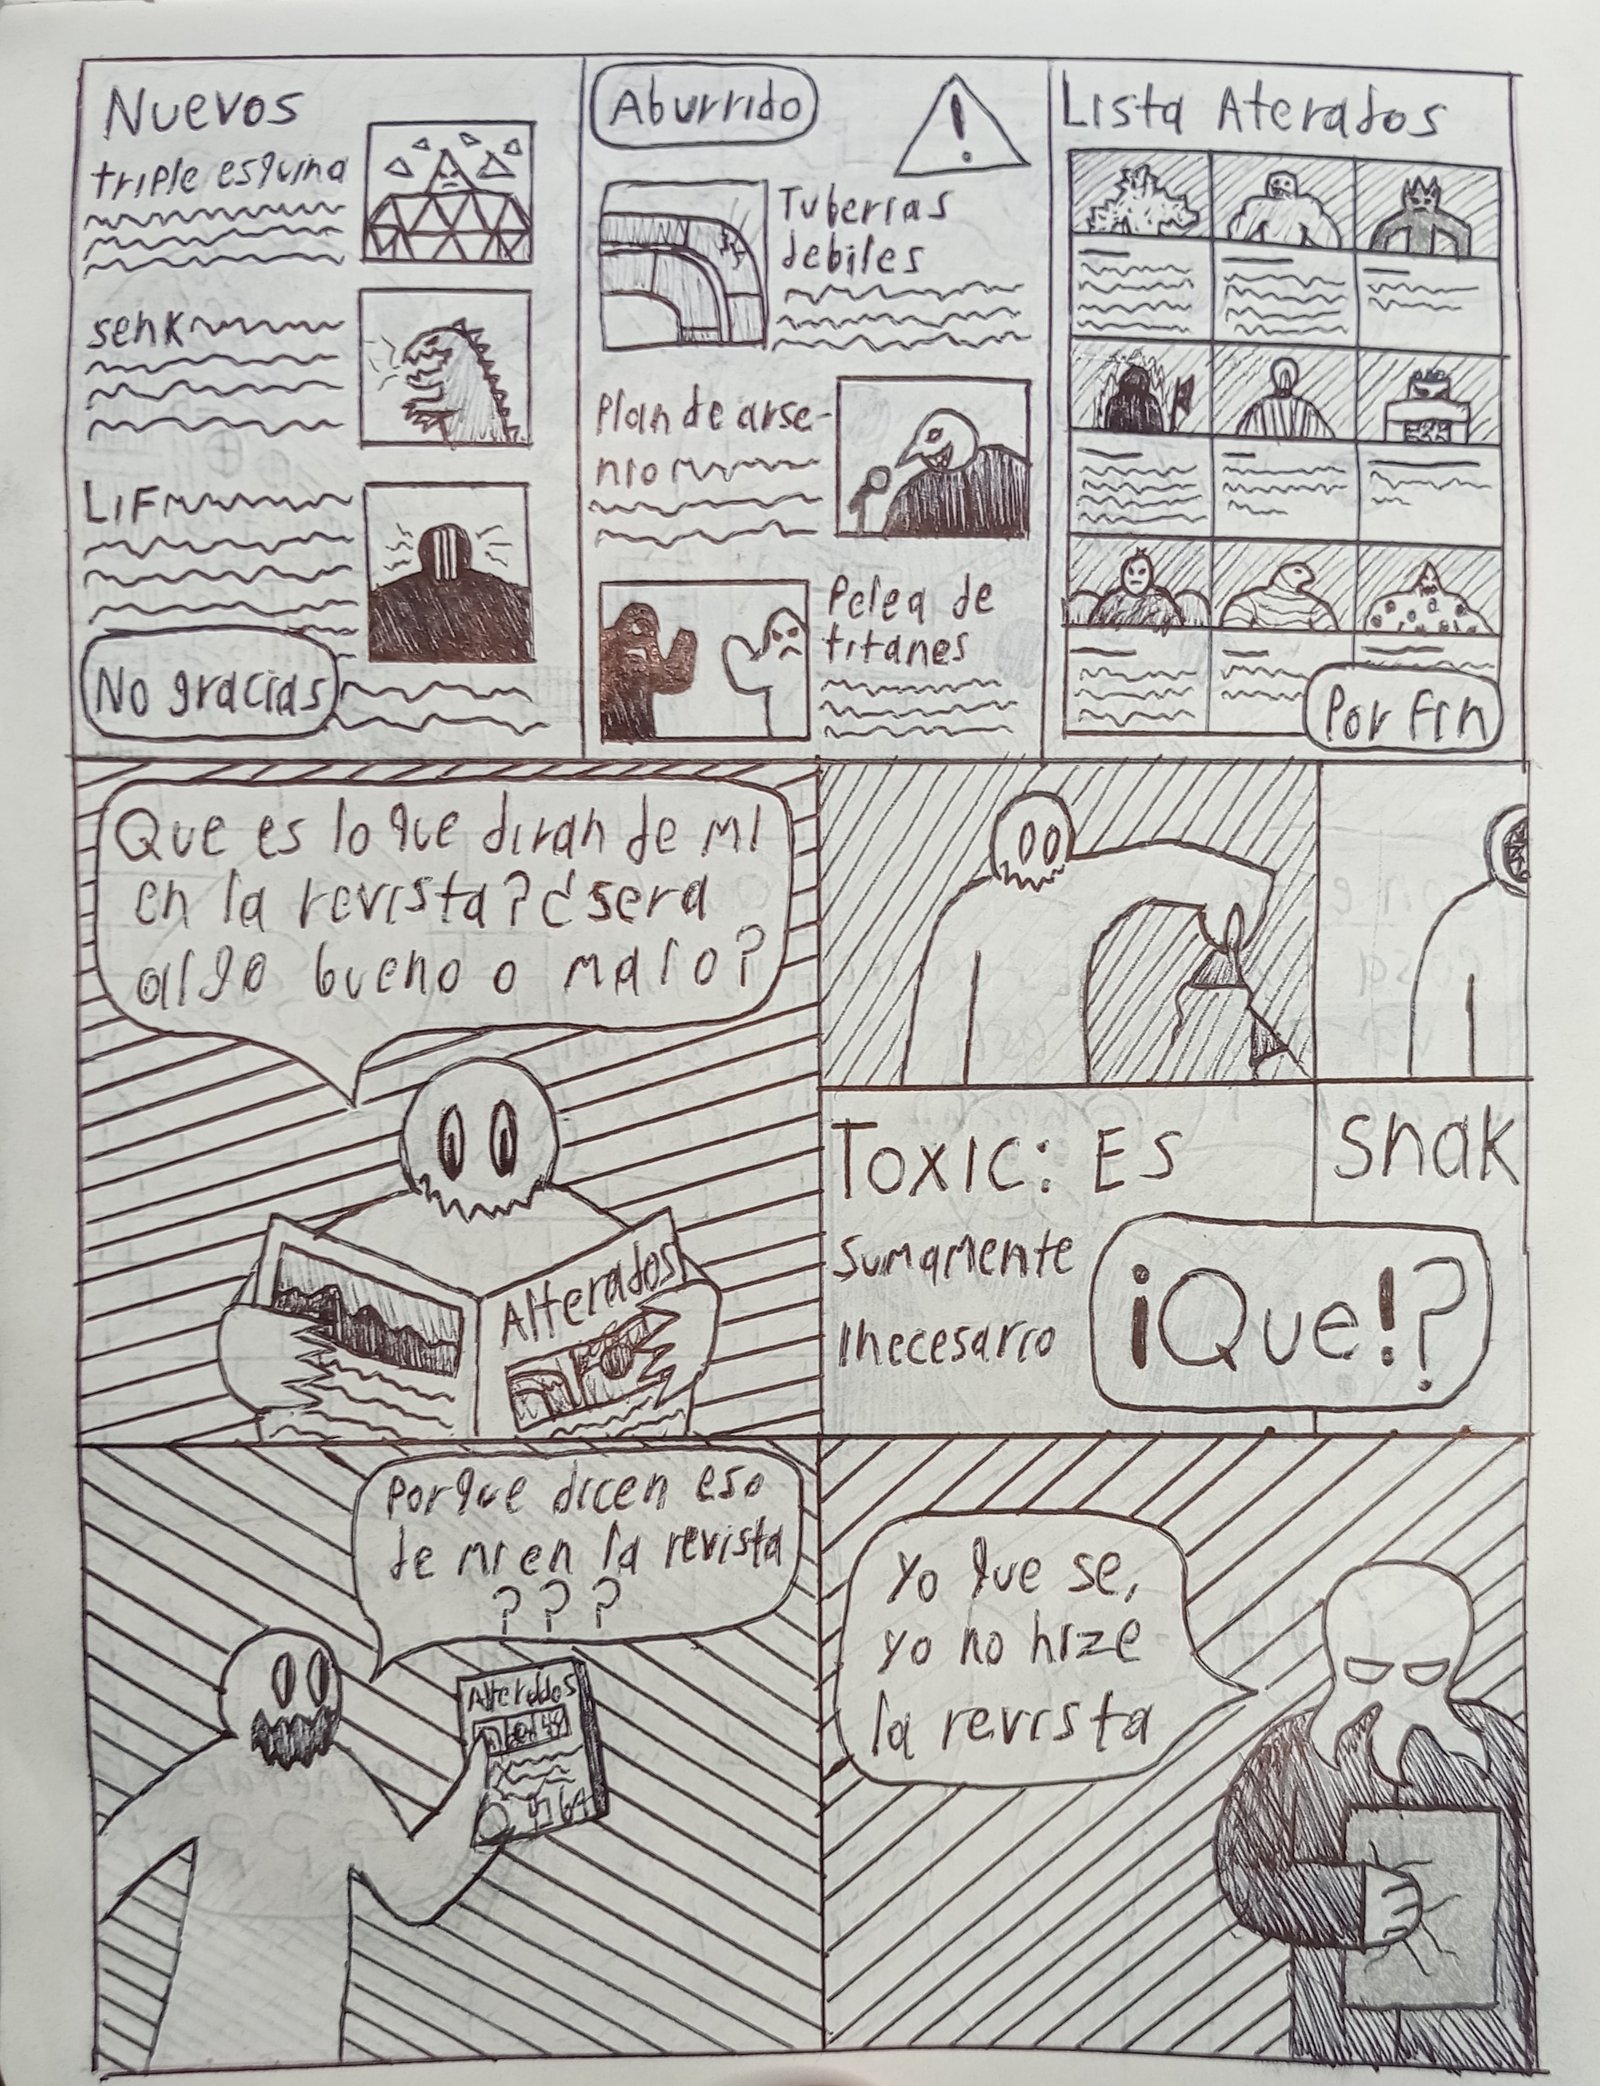 Nuevos
triple esquina
senk
LiF
No gracias
Aburrido
!
Tuberias
debiles
Plan de arse-
nio
Pelea de
titanes
Lista Aterados
Por Fin
Que es lo que diran de mi
en la revista? ¿sera
algo bueno o malo?
Alterados
Toxic: Es
Sumamente
Inecesario
Snak
¡Que!?
Porque dicen eso
de mi en la revista
???
Alterados
Yo que se,
yo no hize
la revista